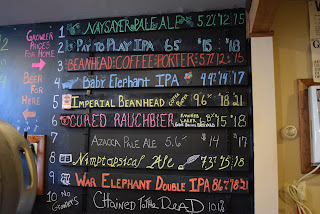 GROWLER
PRICES
FOR
HOME
BEER
FOR
HERE
1 NAYSAYER PALE ALE 5.2
2 PAY TO PLAY IPA 6.5 $15 $18
3 BEANHEAD COFFEE PORTER 5.7 12 15
4 Baby Elephant IPA 4.9
5 IMPERIAL BEANHEAD 9.6% 18 21
6 CURED RAUCHBIER
AZACCA PALE ALE 5.6 $14 $17
8 Nimptopsical Ale 7.3% 15 18
9 WAR ELEPHANT DOUBLE IPA 8.6% 18 21
10 NO GROWLERS CHAINED To The DEAD 10.1%